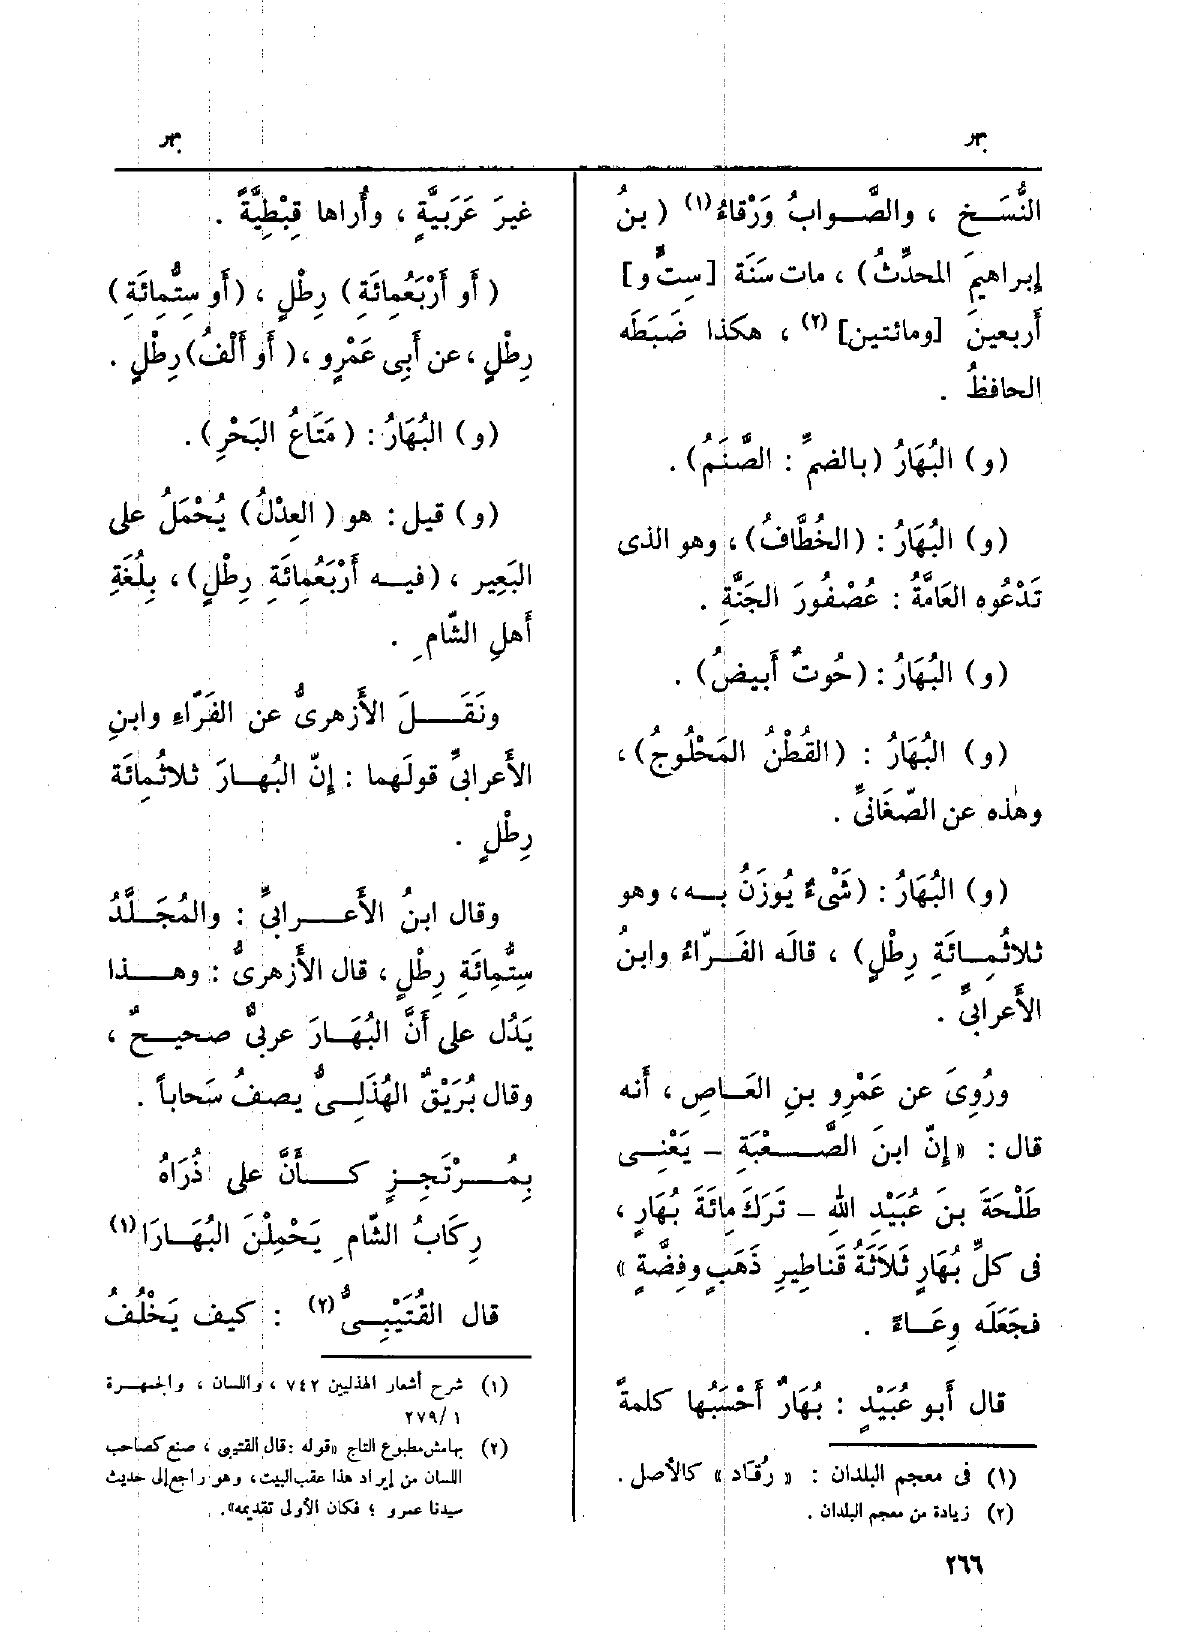 بهر
بهر
النُّسَـخِ ، والصَّـوابُ وَرْقاءُ(١) (بنُ
إبراهيمَ المحدِّثُ) ، مات سَنَةَ [سِتٍّ و]
أربعينَ [ومائتين](٢) ، هكذا ضَبَطَه
الحافظُ .
(و) البُهَارُ (بالضمِّ : الصَّنَمُ) .
(و) البُهَارُ : (الخُطَّافُ) ، وهو الذى
تَدْعُوه العَامَّةُ : عُصْفُورَ الجَنَّةِ .
(و) البُهَارُ : (حُوتٌ أَبيضُ) .
(و) البُهَارُ : (القُطْنُ المَحْلُوجُ) ،
وهٰذه عن الصّغَانىِّ .
(و) البُهَارُ : (شَىْءٌ يُوزَنُ بـه ، وهو
ثلاثُمِـائَةِ رِطْلٍ) ، قالَه الفَـرّاءُ وابنُ
الأَعرابىِّ .
ورُوِىَ عن عَمْرِو بنِ العَـاصِ ، أَنه
قال : «إنّ ابنَ الصَّـعْبَةِ – يَعْنِـى
طَلْحَةَ بنَ عُبَيْدِ اللهِ – تَرَكَ مِائَةَ بُهَارٍ ،
فى كلِّ بُهَارٍ ثَلاَثَةُ قناطِيرِ ذَهَبٍ وفِضَّةٍ»
فجَعَلَه وِعَـاءً .
قال أَبو عُبَيْدٍ : بُهَارٌ أَحْسَبُها كلمةً
(١) فى معجم البلدان : « رُقَاد » كالأصل .
(٢) زيادة من معجم البلدان .
غيرَ عَرَبيَّةٍ ، وأُراها قِبْطِيَّةً .
(أَو أَرْبَعُمِائَةِ) رِطْلٍ ، (أَو سِتُّمِائَةِ)
رِطْلٍ ، عن أَبِى عَمْرٍو ، (أَو أَلْفُ) رِطْلٍ .
(و) البُهَارُ : (مَتَاعُ البَحْرِ) .
(و) قيل : هو (العِدْلُ) يُحْمَلُ على
البَعِير ، (فيـه أَرْبَعُمِائَةِ رِطْلٍ) ، بِلُغَةِ
أَهلِ الشّامِ .
ونَقَـلَ الأَزهرىُّ عن الفَرّاءِ وابنِ
الأَعرابىِّ قولَهما : إنّ البُهـارَ ثلاثُمِائَة
رِطْلٍ .
وقال ابنُ الأَعـرابىِّ : والمُجَلَّدُ
سِتُّمِائَةِ رِطْلٍ ، قال الأَزهرىُّ : وهـذا
يَدُل على أَنَّ البُهَـارَ عربىٌّ صحيـحٌ ،
وقال بُرَيْقٌ الهُذَلِـىُّ يصفُ سَحاباً .
بِمُـرْتَجِـزٍ كـأَنَّ على ذُرَاهُ
رِكَابُ الشّامِ يَحْمِلْنَ البُهَـارَا(١)
قال القُتَيْبِـىُّ(٢) : كيف يَخْلُفُ
(١) شرح أشعار الهذليين ٧٤٢ ، واللسان ، والجمهـرة
٢٧٩/١
(٢) بهامش مطبوع التاج «قوله : قال القتيبى ، صنع كصاحب
اللسان من إيراد هذا عقب البيت ، وهو راجع إلى حديث
سيدنا عمرو ؛ فكان الأولى تقديمه» .
٢٦٦